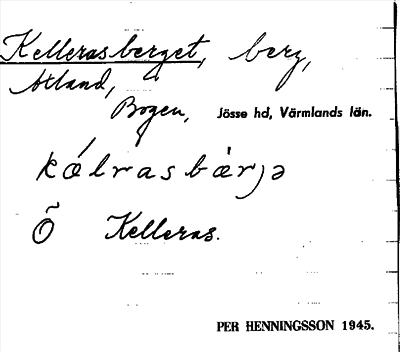 Kellerasberget, berg,
Utland,
Bogen, Jösse hd, Värmlands län.
kǽlrasbàrjə
Õ Kelleras.
PER HENNINGSSON 1945.